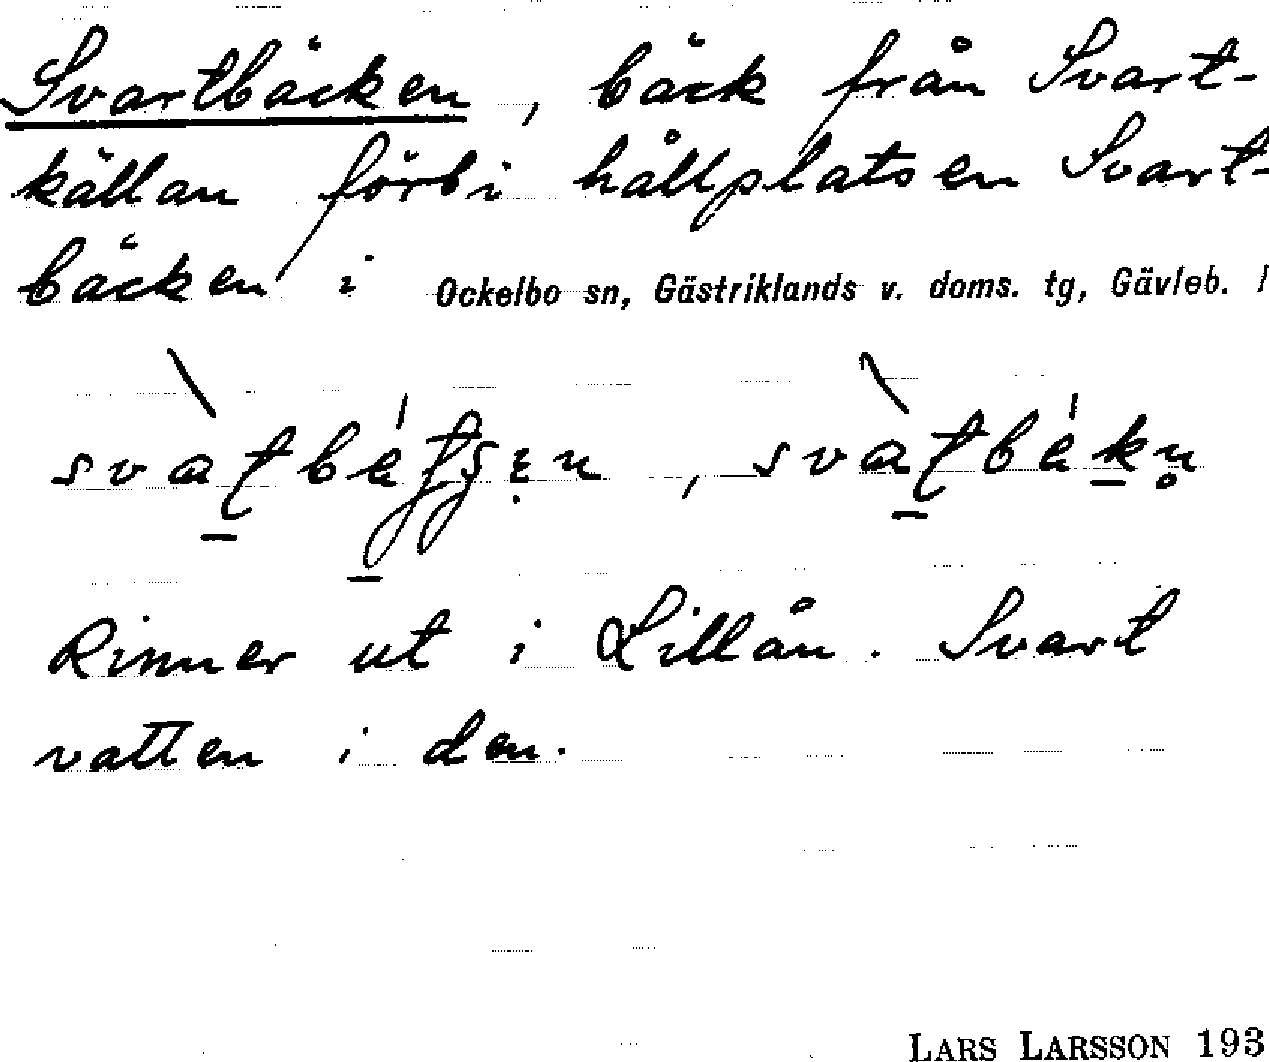 Svartbäcken, bäck från Svart-
källan förbi hållplatsen Svart-
bäcken i Ockelbo sn, Gästriklands v. doms. tg, Gävleb. l
Rinner ut i Lillån. Svart
vatten i den.
LARS LARSSON 193